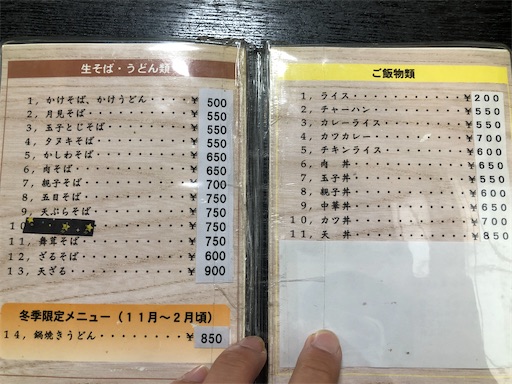 生そば・うどん類
1, かけそば、かけうどん・・・・・¥ 500
2, 月見そば・・・・・・・・・・¥ 550
3, 玉子とじそば・・・・・・・・¥ 550
4, タヌキそば・・・・・・・・・¥ 550
5, かしわそば・・・・・・・・・¥ 650
6, 肉そば・・・・・・・・・・・¥ 650
7, 親子そば・・・・・・・・・・¥ 700
8, 五目そば・・・・・・・・・・¥ 750
9, 天ぷらそば・・・・・・・・・¥ 750
10 ・・・・・・・・・・¥ 750
11, 舞茸そば・・・・・・・・・¥ 750
12, ざるそば・・・・・・・・・¥ 600
13, 天ざる・・・・・・・・・・¥ 900
冬季限定メニュー(11月~2月頃)
14, 鍋焼きうどん・・・・・・・・¥ 850
ご飯物類
1, ライス・・・・・・・・・・・¥ 200
2, チャーハン・・・・・・・・・¥ 550
3, カレーライス・・・・・・・・¥ 550
4, カツカレー・・・・・・・・・¥ 700
5, チキンライス・・・・・・・・¥ 600
6, 肉 丼・・・・・・・・・・・¥ 650
7, 玉子丼・・・・・・・・・・・¥ 550
8, 親子丼・・・・・・・・・・・¥ 600
9, 中華丼・・・・・・・・・・・¥ 650
10, カツ丼・・・・・・・・・・¥ 700
11, 天 丼・・・・・・・・・・¥ 850